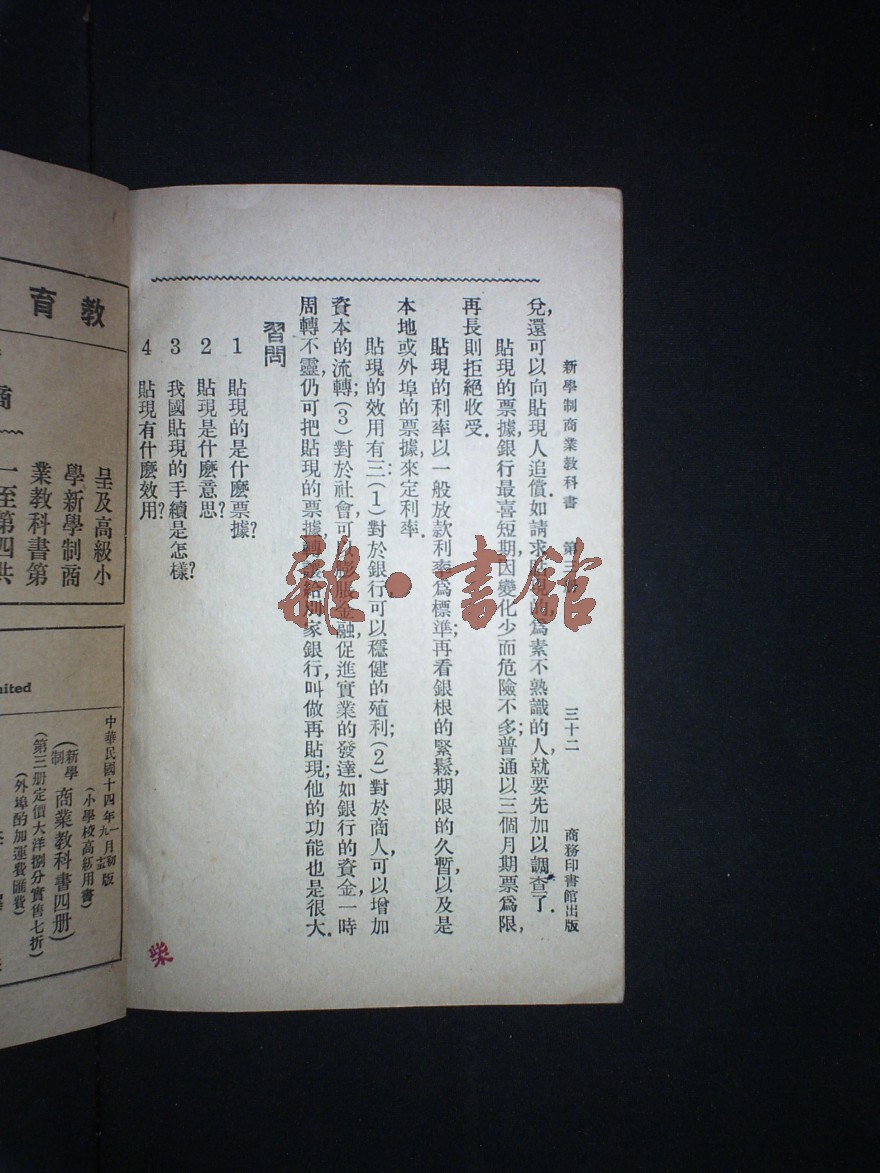 新學制商業教科書 第三册 三十二 商務印書館出版
兌,還可以向貼現人追償.如請求貼現的,爲素不熟識的人,就要先加以調查了.
貼現的票據,銀行最喜短期,因變化少而危險不多;普通以三個月期票爲限,
再長則拒絕收受.
貼現的利率,以一般放款利率爲標準;再看銀根的緊鬆,期限的久暫,以及是
本地或外埠的票據,來定利率.
貼現的效用有三:(1)對於銀行可以穩健的殖利;(2)對於商人,可以增加
資本的流轉;(3)對於社會,可以膨脹金融,促進實業的發達.如銀行的資金,一時
周轉不靈,仍可把貼現的票據,轉讓給別家銀行,叫做再貼現;他的功能也是很大.
習問
1 貼現的是什麼票據?
2 貼現是什麼意思?
3 我國貼現的手續是怎樣?
4 貼現有什麼效用?
雜·書館
柴
教育
商
呈及高級小
學新學制商
業教科書第
一至第四共
nited
中華民國十四年一月初版
(小學校高級用書)
新學制 商業教科書四册
(第三册定價大洋捌分實售七折)
(外埠酌加運費匯費)